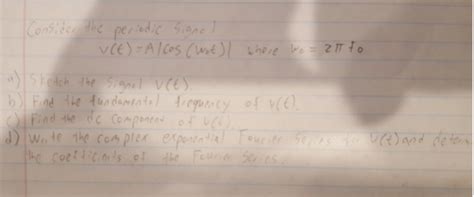 Consider the periodic signal
v(t) = A|cos(w₀t)| where w₀ = 2πf₀
a) Sketch the signal v(t).
b) Find the fundamental frequency of v(t).
c) Find the dc component of v(t).
d) Write the complex exponential Fourier Series for v(t) and determ
the coefficients of the Fourier Series.